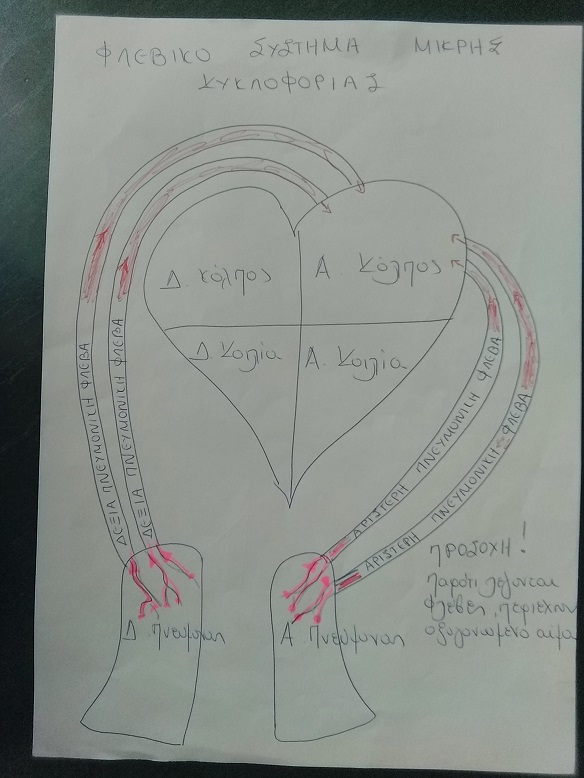 ΦΛΕΒΙΚΟ ΣΥΣΤΗΜΑ ΜΙΚΡΗΣ
ΚΥΚΛΟΦΟΡΙΑΣ
Δ. κόλπος
Α. κόλπος
Δ. κοιλία
Α. κοιλία
ΔΕΞΙΑ ΠΝΕΥΜΟΝΙΚΗ ΦΛΕΒΑ
ΔΕΞΙΑ ΠΝΕΥΜΟΝΙΚΗ ΦΛΕΒΑ
ΑΡΙΣΤΕΡΗ ΠΝΕΥΜΟΝΙΚΗ ΦΛΕΒΑ
ΑΡΙΣΤΕΡΗ ΠΝΕΥΜΟΝΙΚΗ ΦΛΕΒΑ
Δ πνεύμονας
Α πνεύμονας
ΠΡΟΣΟΧΗ!
παρότι λέγονται
φλέβες, περιέχουν
οξυγονωμένο αίμα